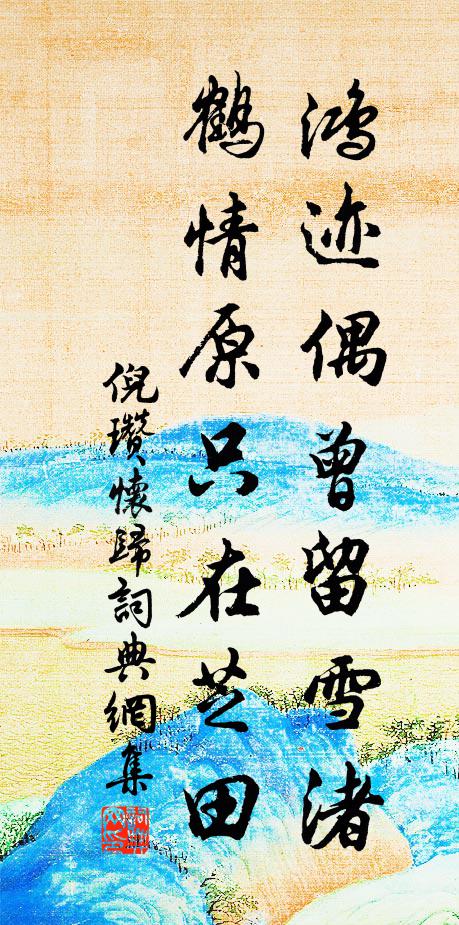 鸿迹偶曾留雪渚
鹤情原只在芝田
倪瓚懷歸詞典網集